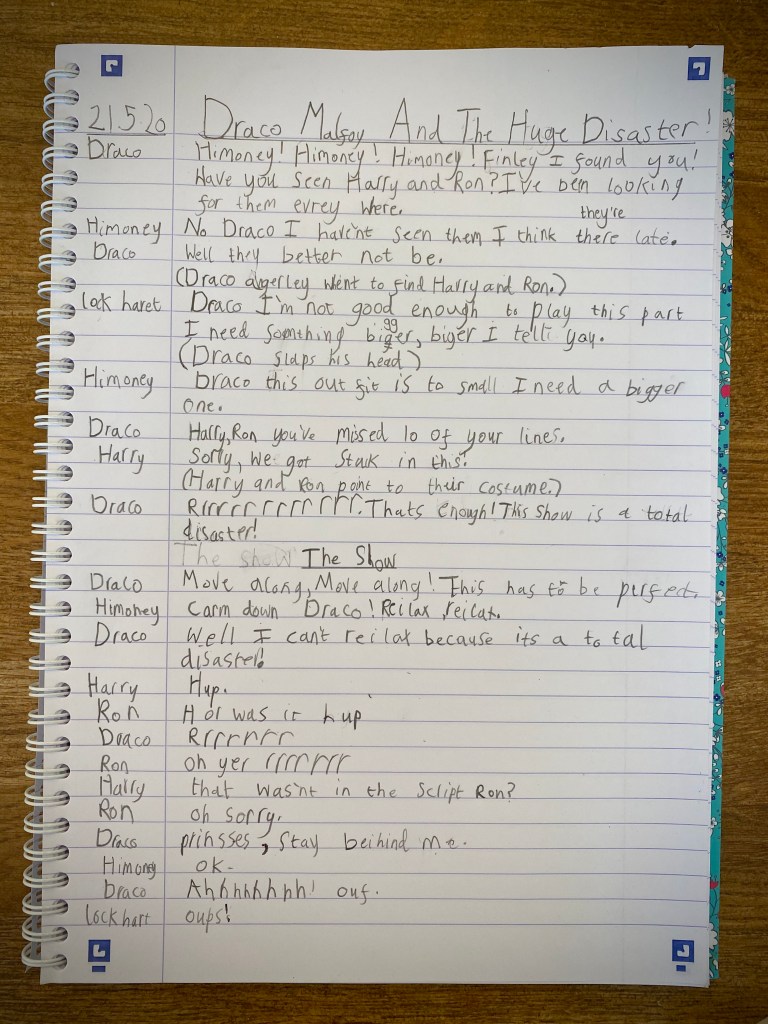 21.5.20 Draco Malfoy And The Huge Disaster!
Draco Himoney! Himoney! Himoney! Finley I found you!
Have you seen Harry and Ron? I've ben looking
for them evrey were.
they're
Himoney No Draco I havent seen them I think there late.
Draco Well they better not be.
(Draco angerley went to find Harry and Ron.)
lock haret Draco I'm not good enough to play this part
gg
I need somthing biger, biger I tell yoy.
(Draco slaps his head)
Himoney Draco this out fit is to small I need a bigger
one.
Draco Harry, Ron you've missed 10 of your lines.
Harry Sorry, we got stuk in this.
(Harry and Ron point to their costume.)
Draco Rrrrrrrrrrrrr. Thats enough! This show is a total
disaster!
The show The Show
Draco Move along, Move along! This has to be perfect.
Himoney Carm down Draco! Reilax, reilax.
Draco Well I can't reilax because its a to tal
disaster!
Harry Hup.
Ron H or was it hup
Draco Rrrrrrr
Ron oh yer rrrrrrr
Harry that was'nt in the script Ron?
Ron oh sorry.
Draco prinsses, stay beihind me.
Himony OK.
Draco Ahhhhhhh! ouf.
lock hart oups!